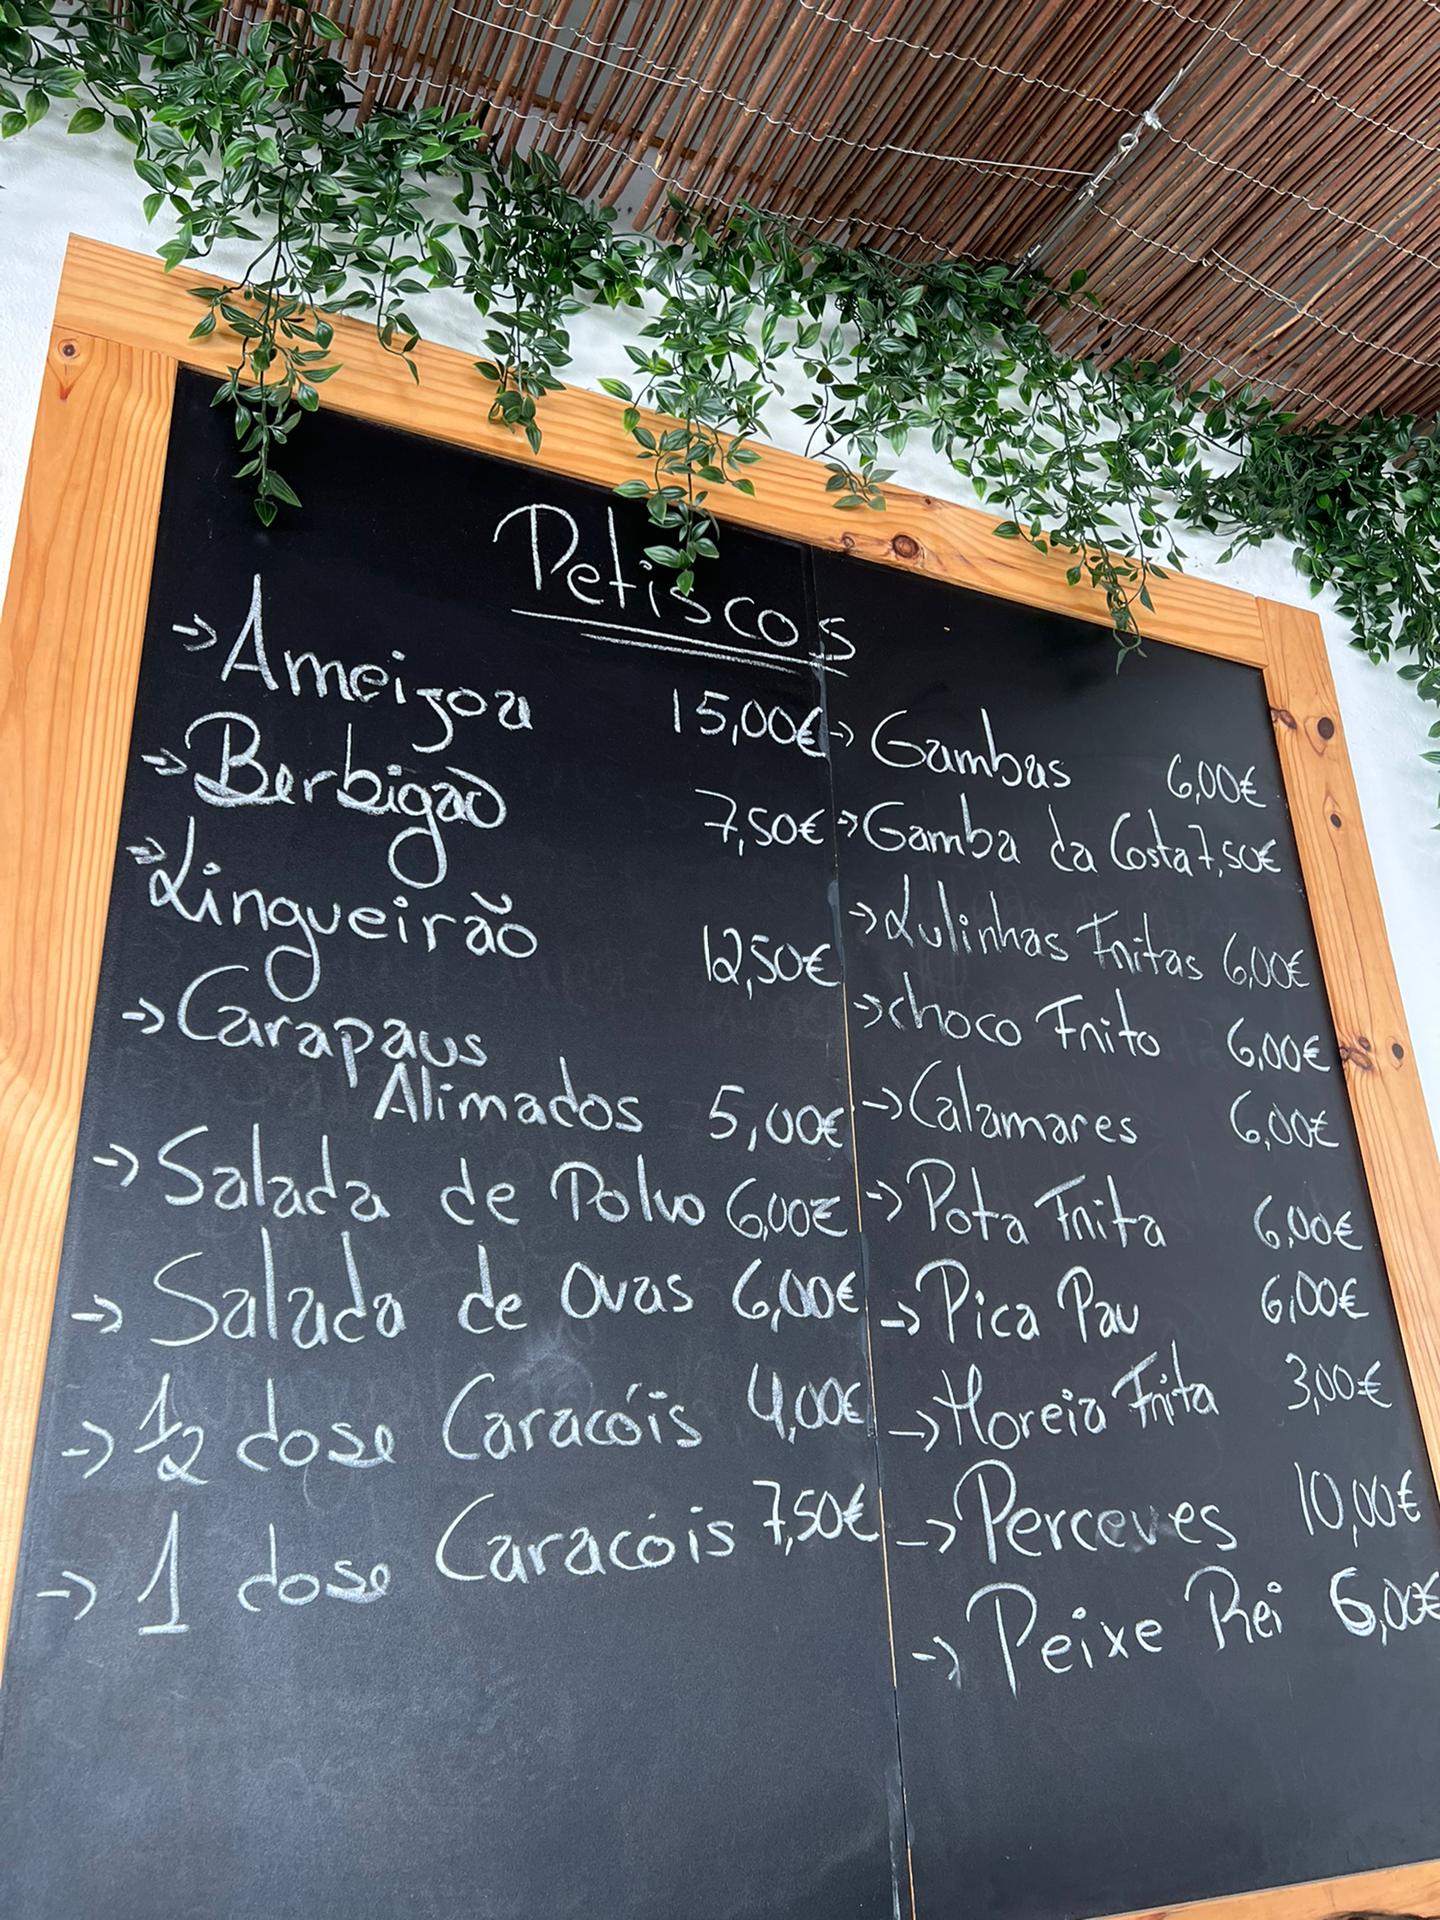 Petiscos
→ Ameijoa 15,00€
→ Berbigão 7,50€
→ Lingueirão 12,50€
→ Carapaus
Alimados 5,00€
→ Salada de Polvo 6,00€
→ Salada de Ovas 6,00€
→ 1/2 dose Caracóis 4,00€
→ 1 dose Caracóis 7,50€
→ Gambas 6,00€
→ Gamba da Costa 7,50€
→ Lulinhas Fritas 6,00€
→ choco Frito 6,00€
→ Calamares 6,00€
→ Pota Frita 6,00€
→ Pica Pau 6,00€
→ Moreia Frita 3,00€
→ Perceves 10,00€
→ Peixe Rei 6,00€